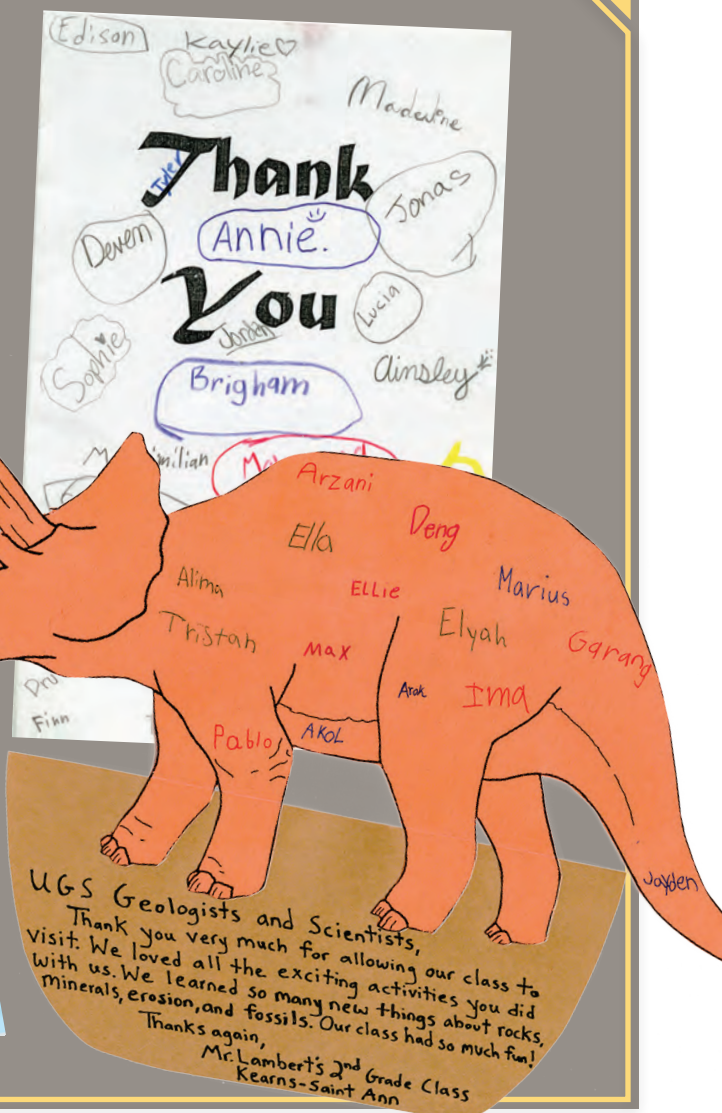 Edison
Kaylie♡
Caroline
Madeline
Thank
Tyler
Jonas
Devem
Annie.
You
Lucia
Jordan
Sophie
Ainsley
Brigham
Arzani
Ella
Deng
Alima
ELLie
Marius
Tristan
Max
Elyah
Garang
Arok
Ima
Finn
Pablo
AKOL
Jayden
UGS Geologists and Scientists,
Thank you very much for allowing our class to
visit. We loved all the exciting activities you did
with us. We learned so many new things about rocks,
minerals, erosion, and fossils. Our class had so much fun!
Thanks again,
Mr. Lambert's 2nd Grade Class
Kearns-Saint Ann